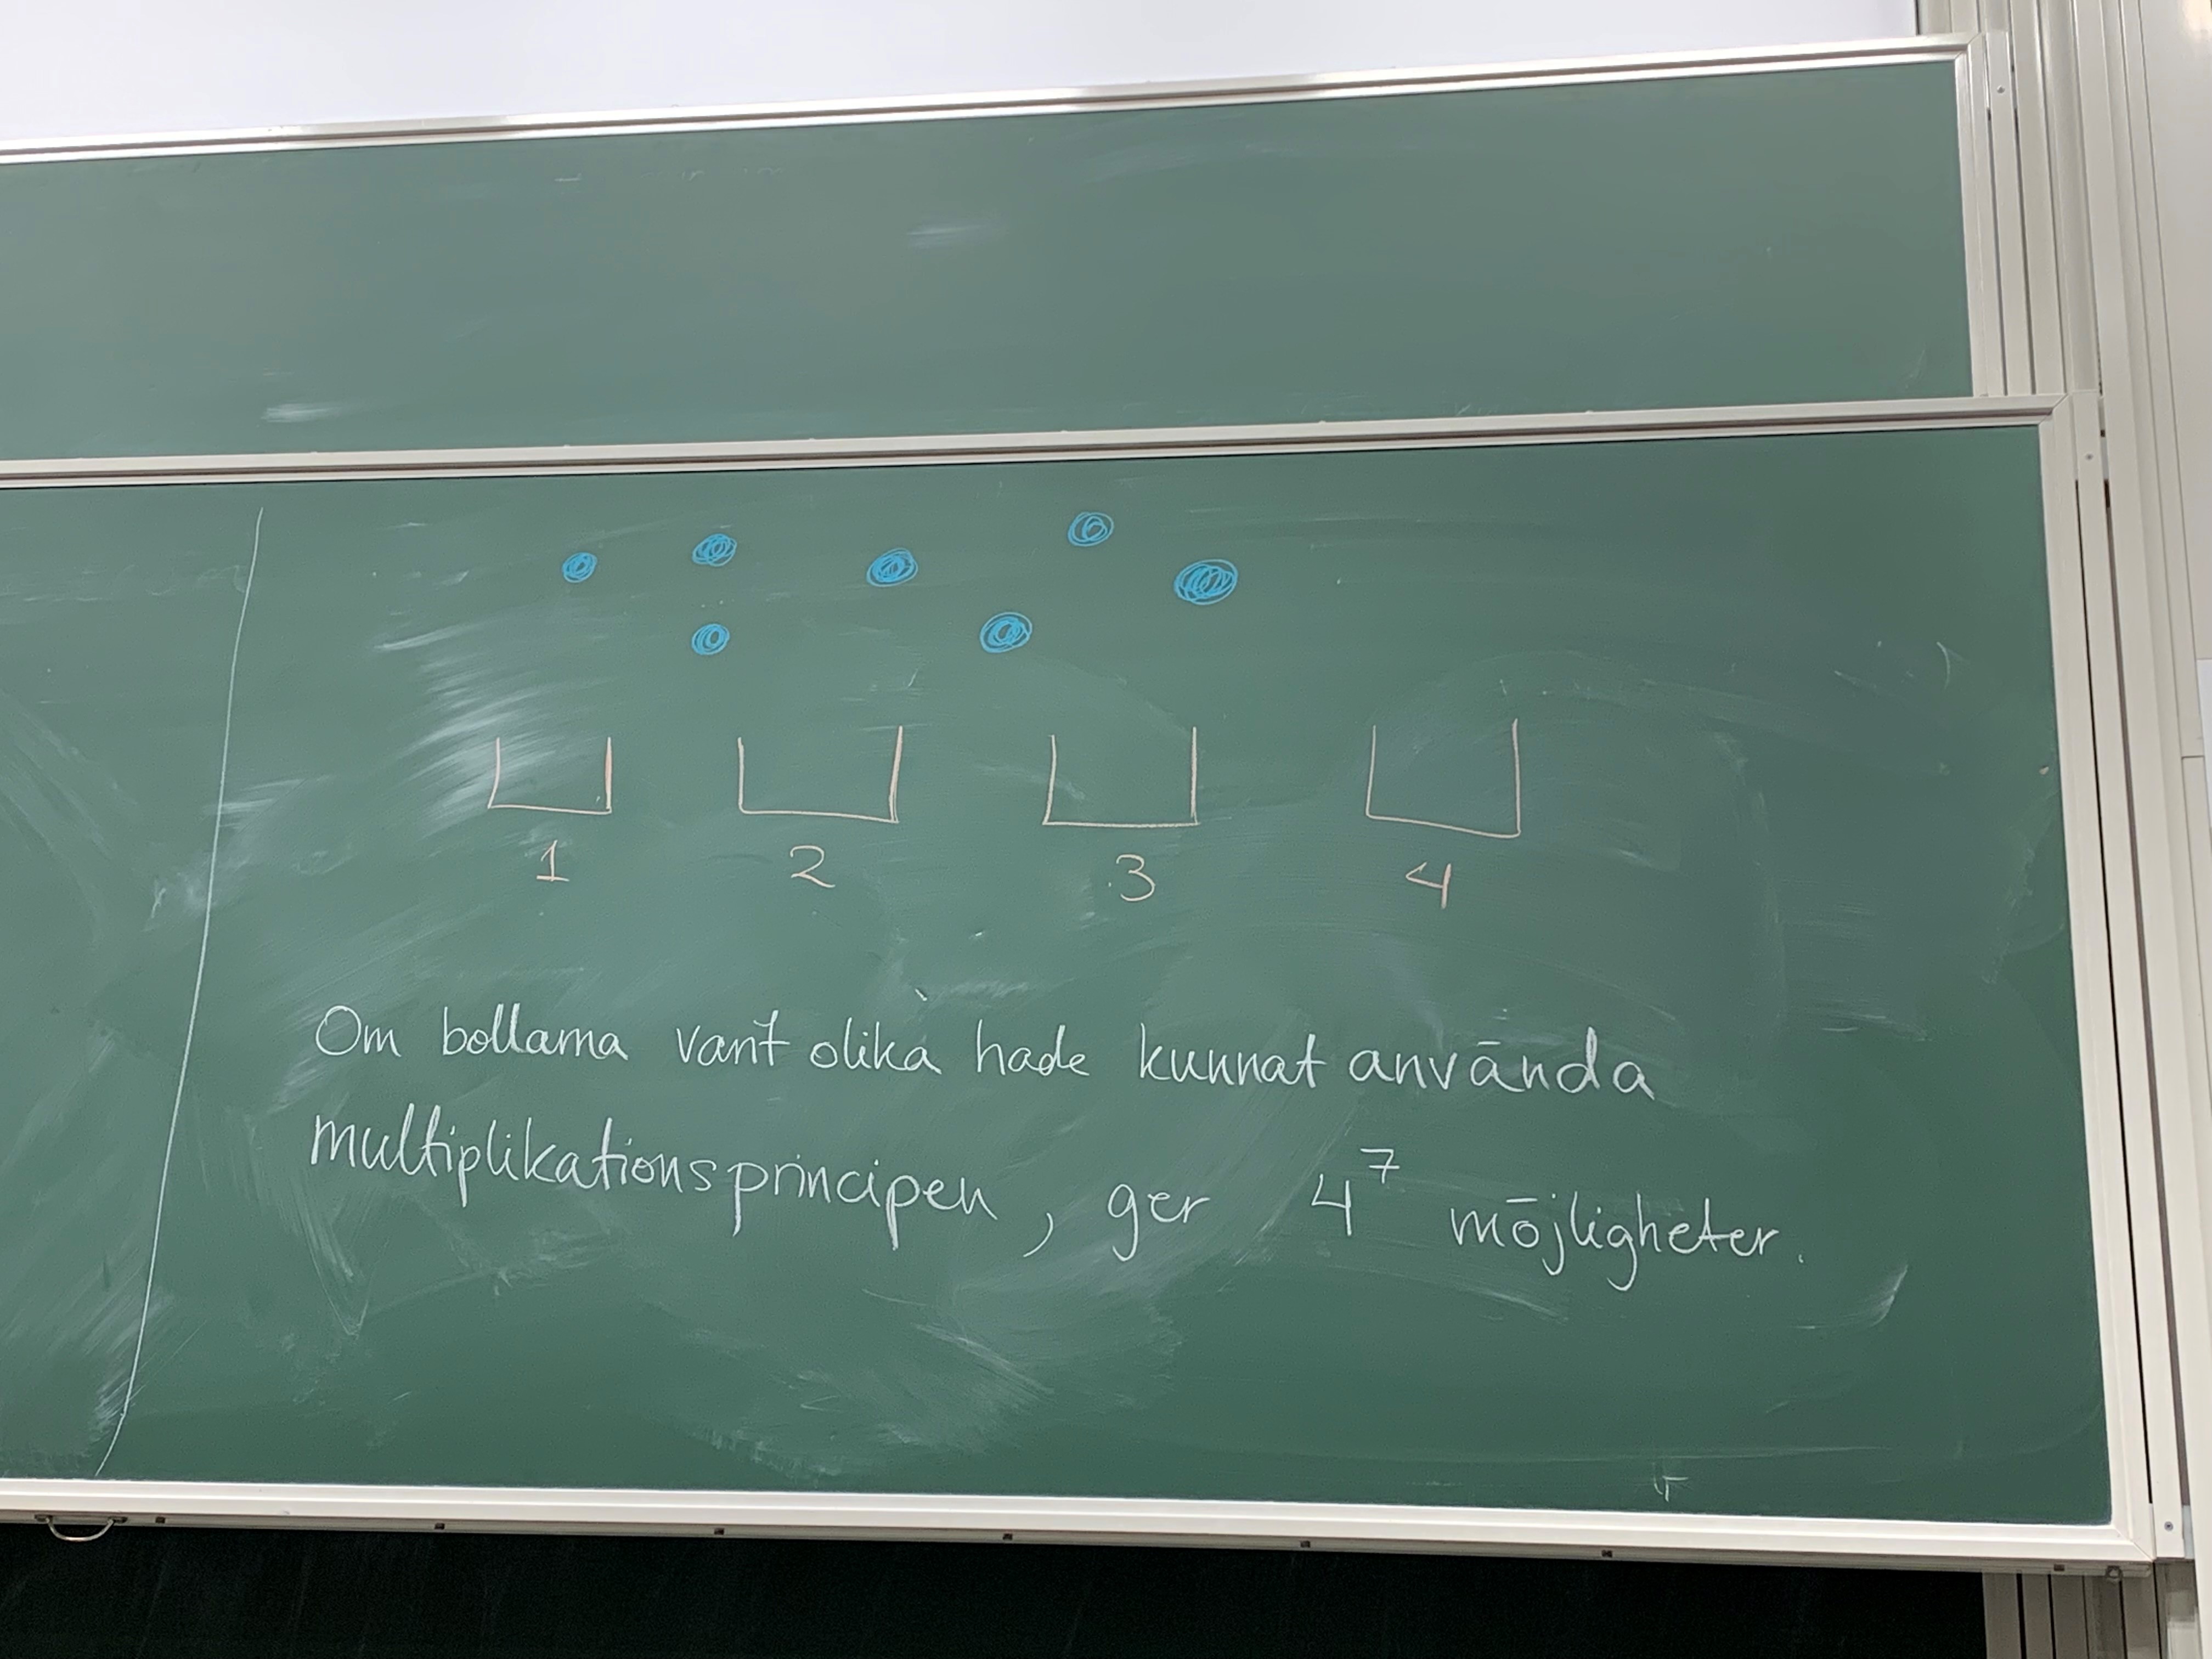 1 2 3 4
Om bollarna varit olika hade kunnat använda
multiplikationsprincipen, ger 4⁷ möjligheter.